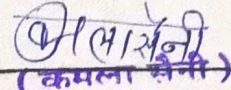 कमला सैनी
(कमला सैनी)